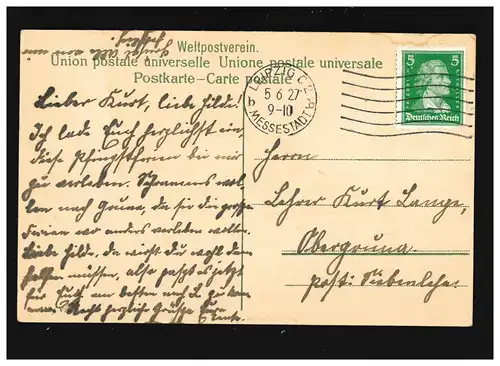 Weltpostverein.
Union postale universelle Unione postale universale
Postkarte – Carte postale
LEIPZIG C 2
5 6 27
9-10
b MESSESTADT
5 5
Deutsches Reich
Lieber Kurt, liebe Hilde!
Ich lade Euch herzlichst ein,
diese Pfingstferien bei mir
zu verleben. Schramms wol-
len nach Gruna, da sie die großen
Ferien wo anders verleben wollen.
Liebe Hilde, da wirst Du wohl dem
helfen müssen, also paßt es jetzt
für Euch am besten nach L. zu kom-
men. Recht herzliche Grüße Eure
Tante.
Herrn
Lehrer Kurt Lange,
Obergruna
post: Siebenlehn